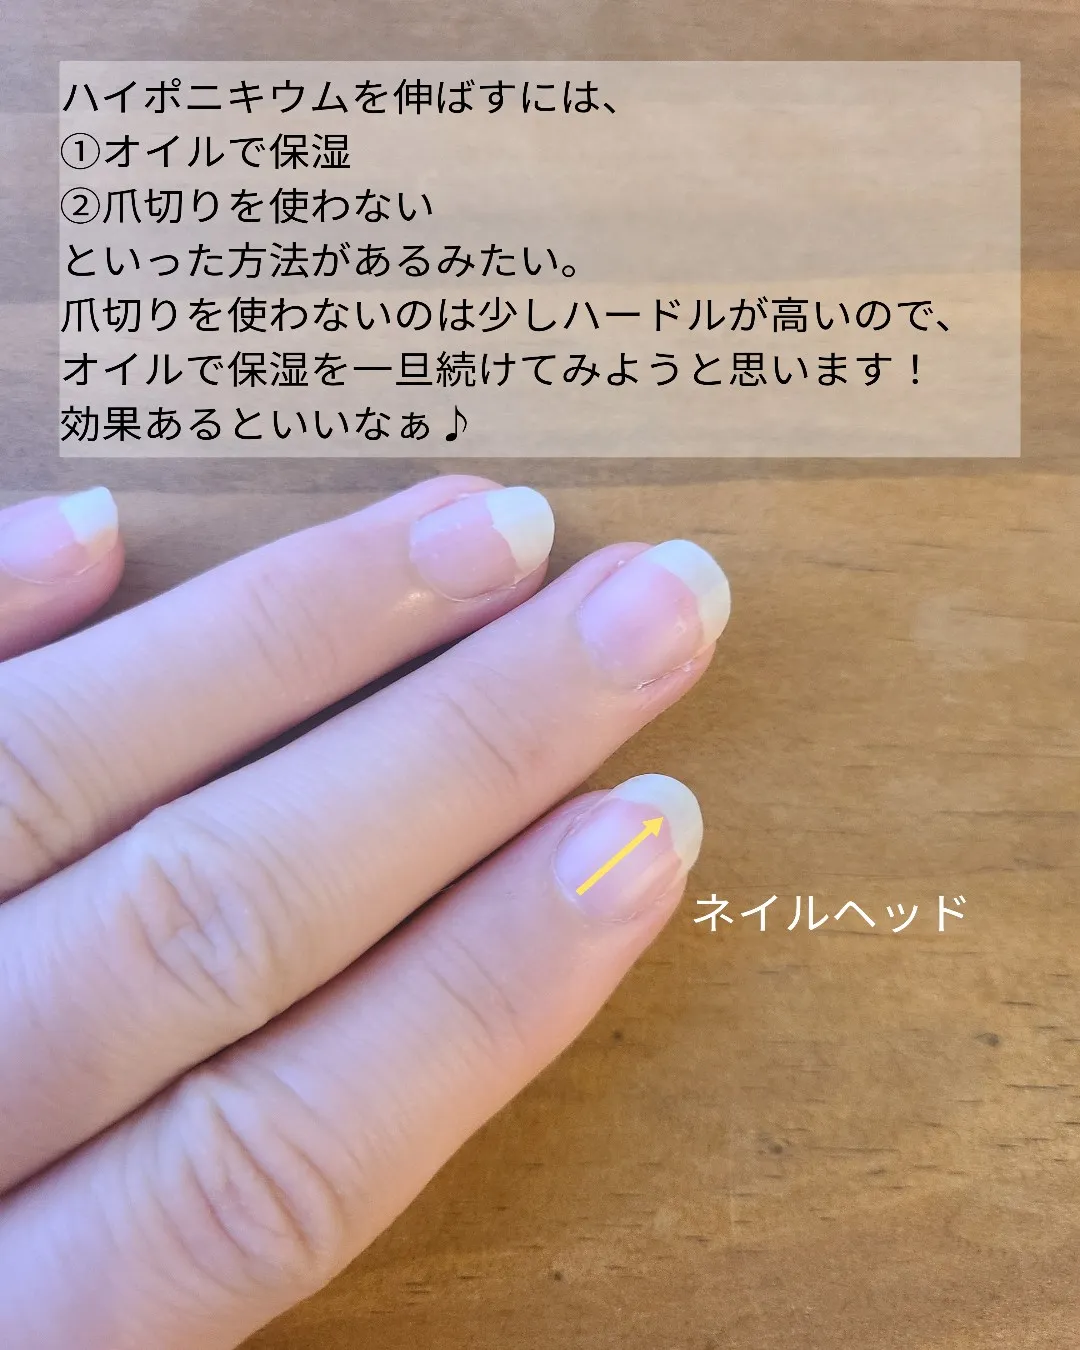 ハイポニキウムを伸ばすには、
①オイルで保湿
②爪切りを使わない
といった方法があるみたい。
爪切りを使わないのは少しハードルが高いので、
オイルで保湿を一旦続けてみようと思います！
効果あるといいなぁ♪
ネイルヘッド